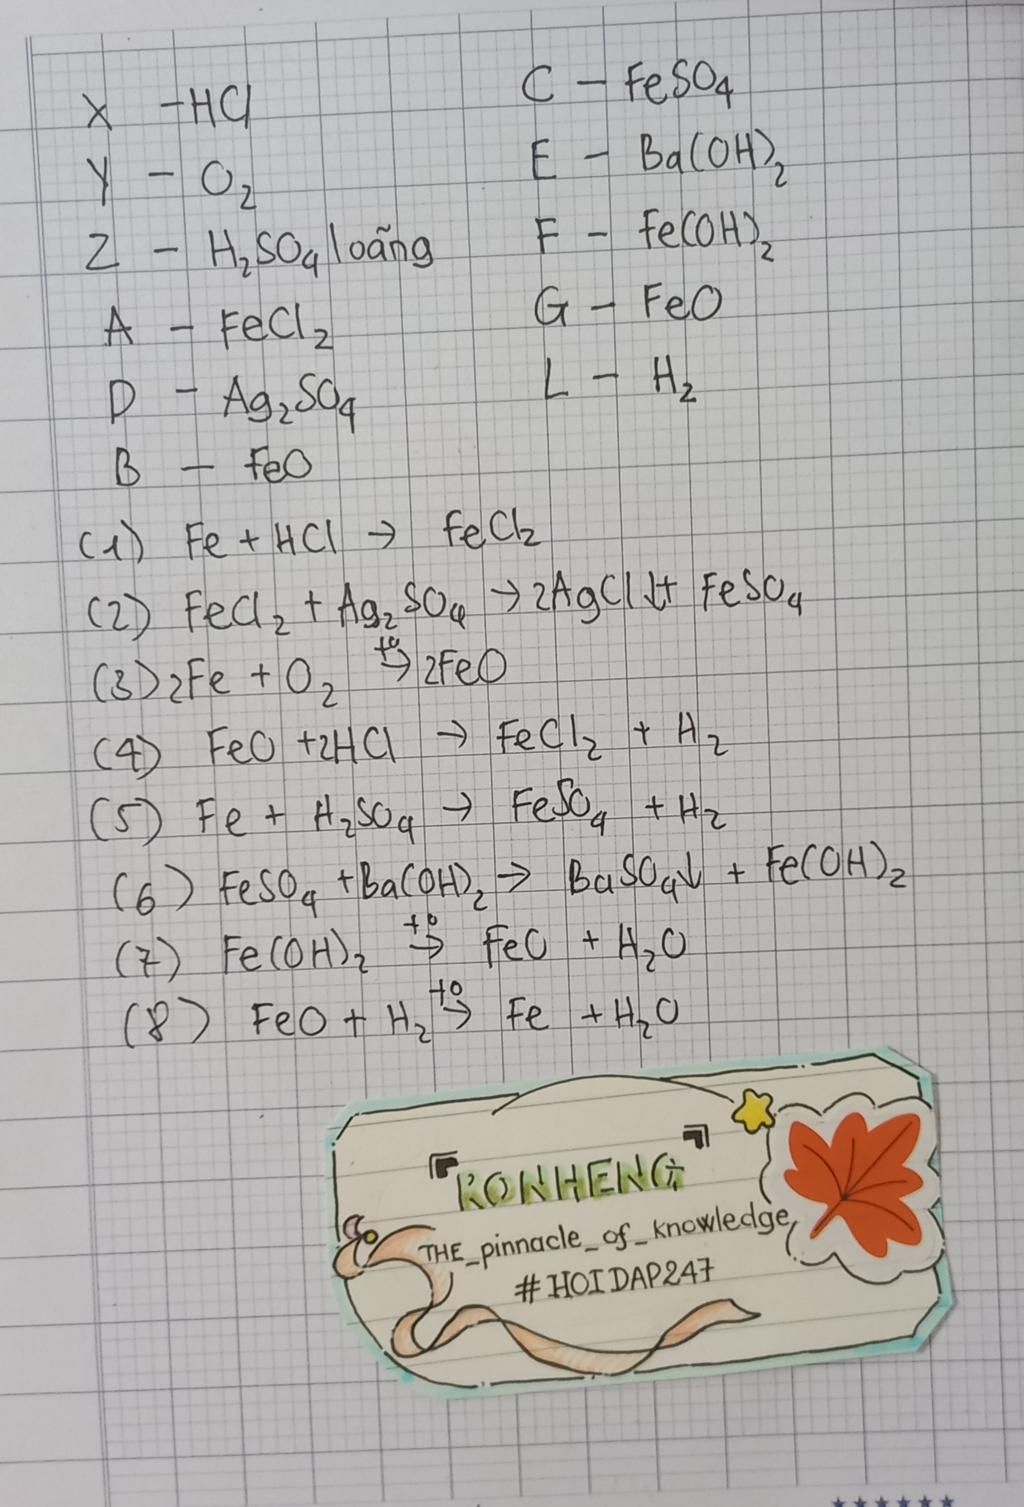 X - HCl
Y - O₂
Z - H₂SO₄ loãng
A - FeCl₂
D - Ag₂SO₄
B - FeO
C - FeSO₄
E - Ba(OH)₂
F - Fe(OH)₂
G - FeO
L - H₂
(1) Fe + HCl → FeCl₂
(2) FeCl₂ + Ag₂SO₄ → 2AgCl↓ + FeSO₄
(3) 2Fe + O₂ t° → 2FeO
(4) FeO + 2HCl → FeCl₂ + H₂
(5) Fe + H₂SO₄ → FeSO₄ + H₂
(6) FeSO₄ + Ba(OH)₂ → BaSO₄↓ + Fe(OH)₂
(7) Fe(OH)₂ t° → FeO + H₂O
(8) FeO + H₂ t° → Fe + H₂O
『RONHENG』
THE_pinnacle_of_knowledge
#HOIDAP247